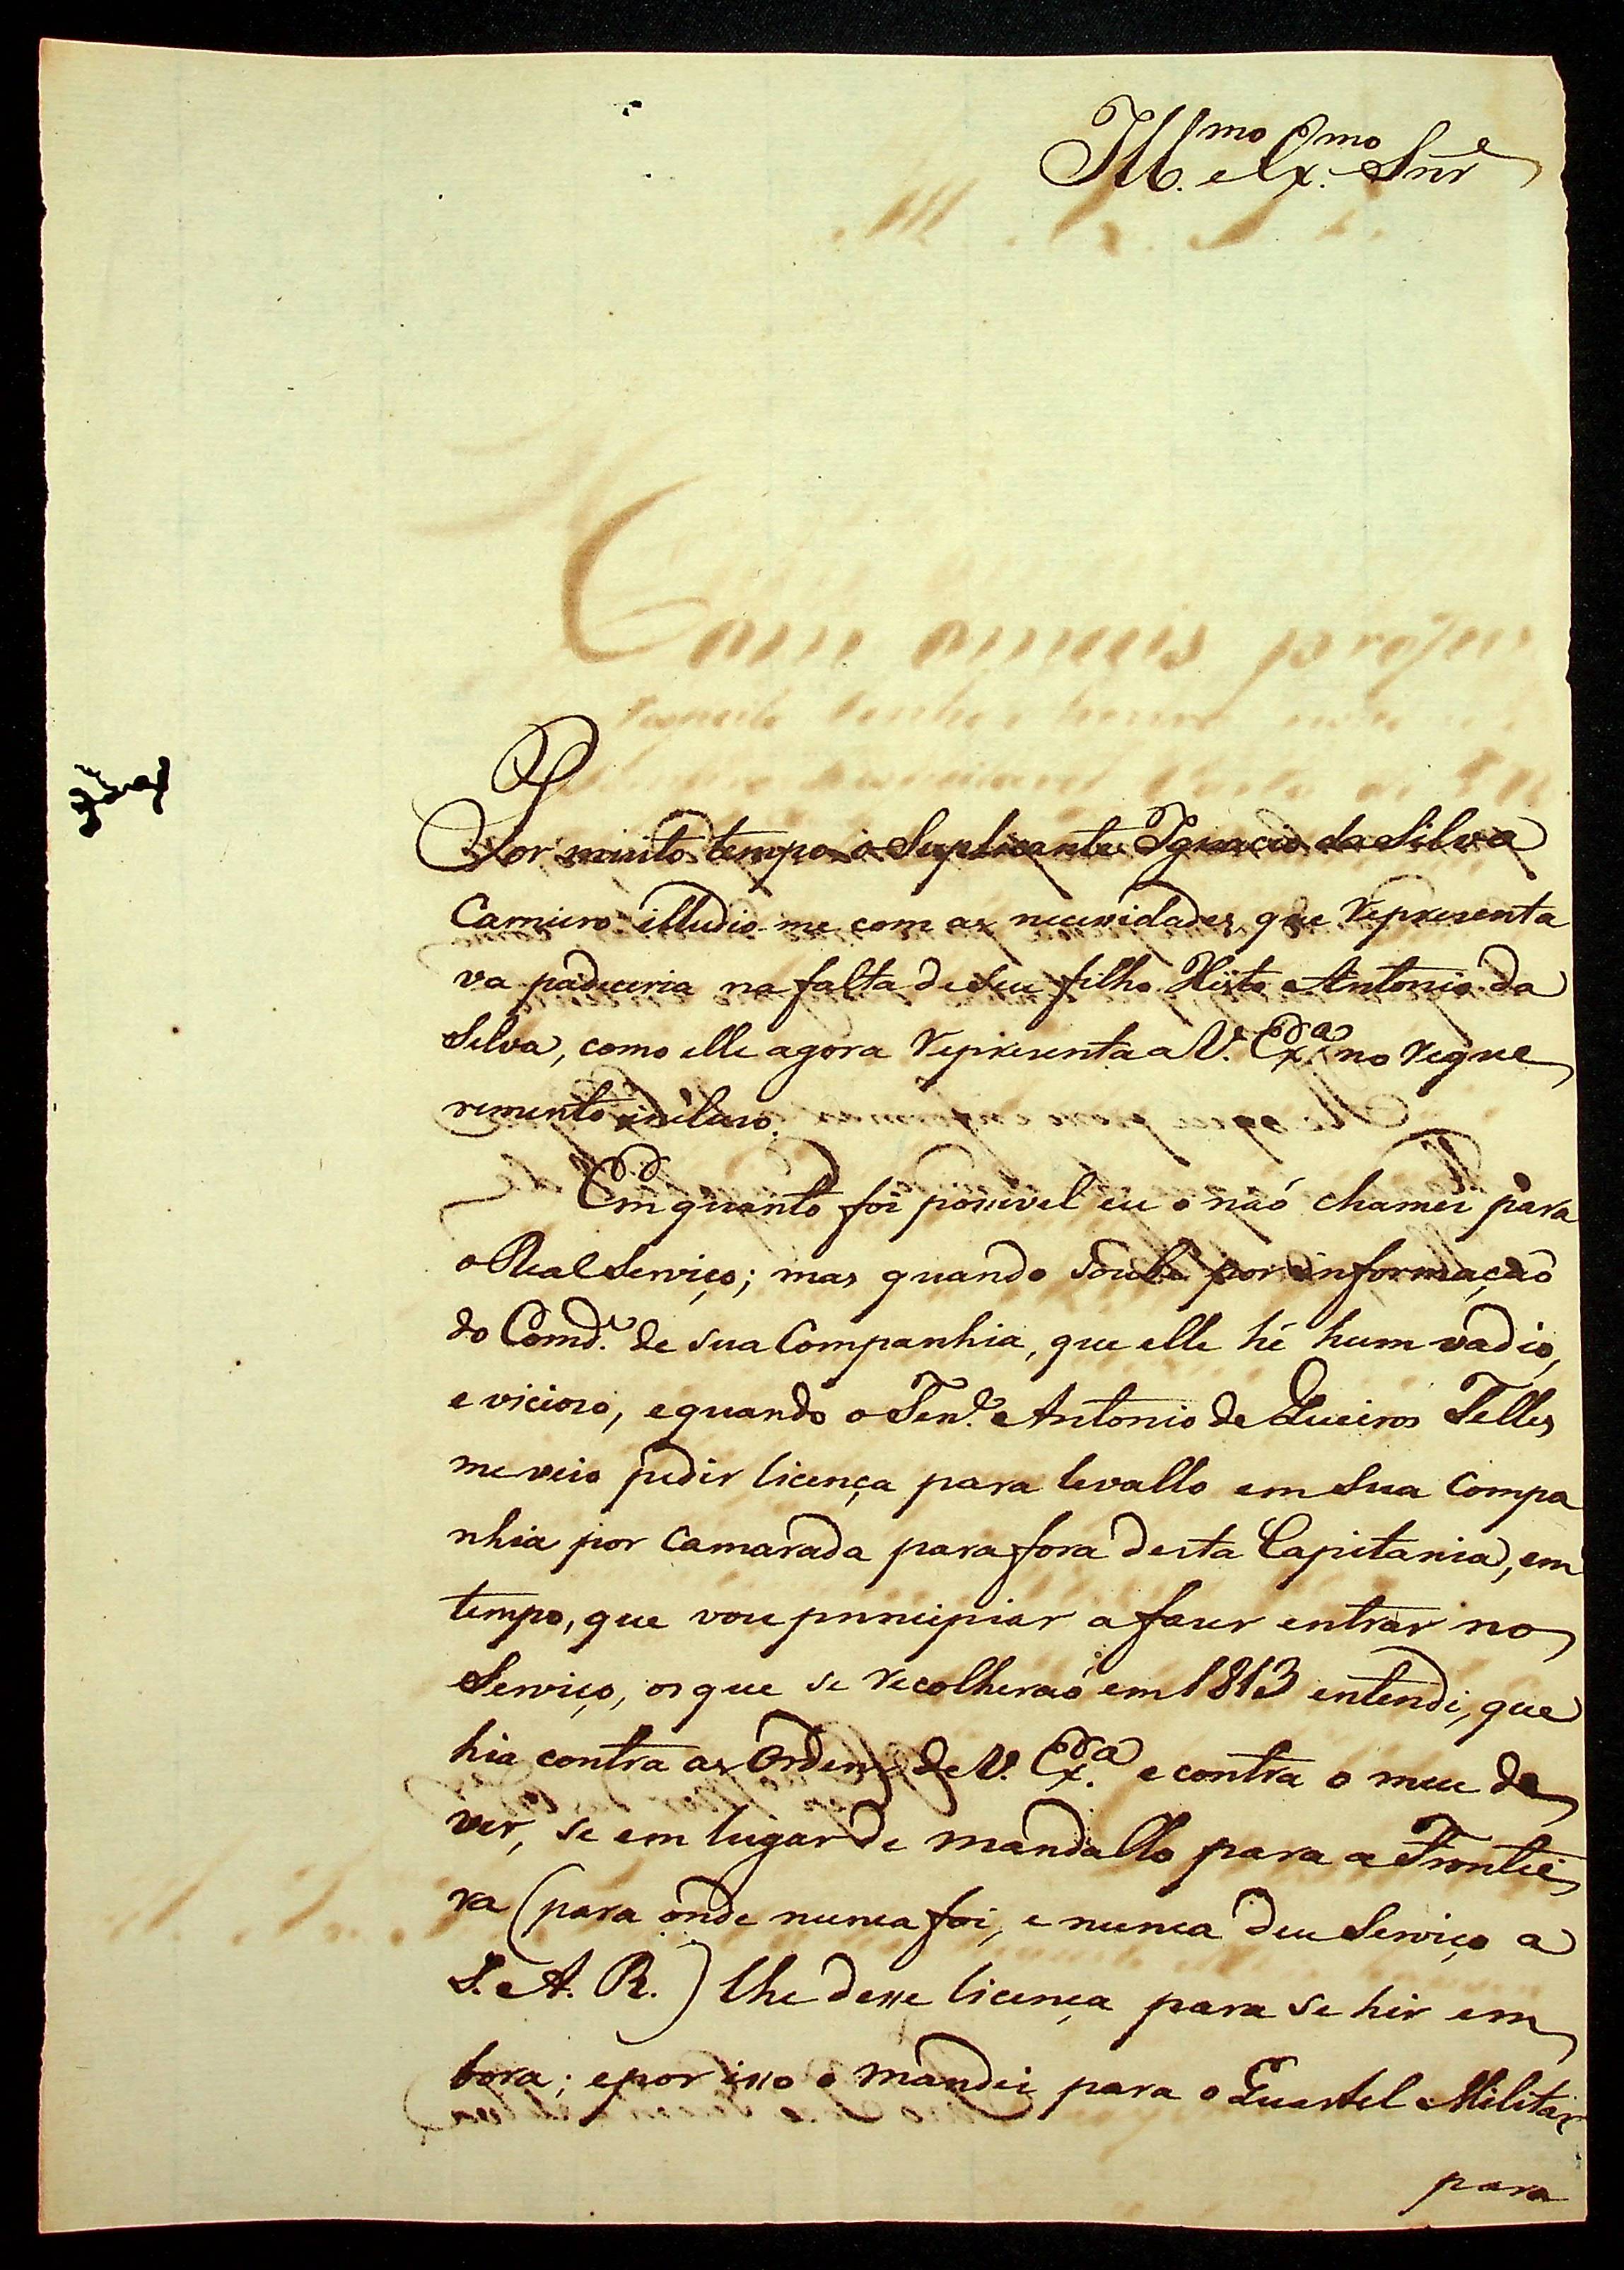 Ill.mo e Ex.mo Snr
Por muito tempo o Suplicante Ignacio da Silva
Carneiro illudio-me com as necessidades, que representa
va padeceria na falta de seu filho Antonio da
Silva, como elle agora representa a V. Ex.a no reque
rimento incluso.
Em quanto foi possivel eu o naõ chamei para
o Real Serviço; mas quando soube por informaçaõ
do Comd.e de sua Companhia, que elle hé hum vadio,
e vicioso, e quando o Ten.e Antonio de Queiros Telles
me veio pedir licença para levallo em sua Compa
nhia por Camarada para fora desta Capitania, em
tempo, que vou principiar a fazer entrar no
Serviço, os que se recolheraõ em 1813 entendi, que
hia contra as Ordens de V. Ex.a e contra o meu de
ver, se em lugar de mandallo para a Frontei
ra (para onde nunca foi, e nunca deu Serviço a
S. A. R.) lhe desse licença para se hir em
bora; e por isso o mandei para o Quartel Militar
para